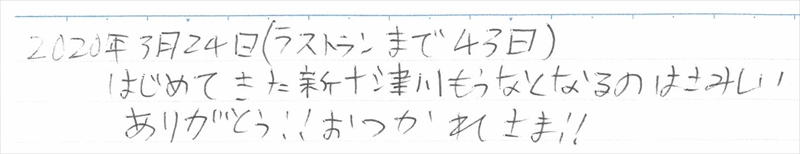 2020年3月24日(ラストランまで43日)
はじめてきた新十津川もうなくなるのはさみしい
ありがとう!!おつかれさま!!